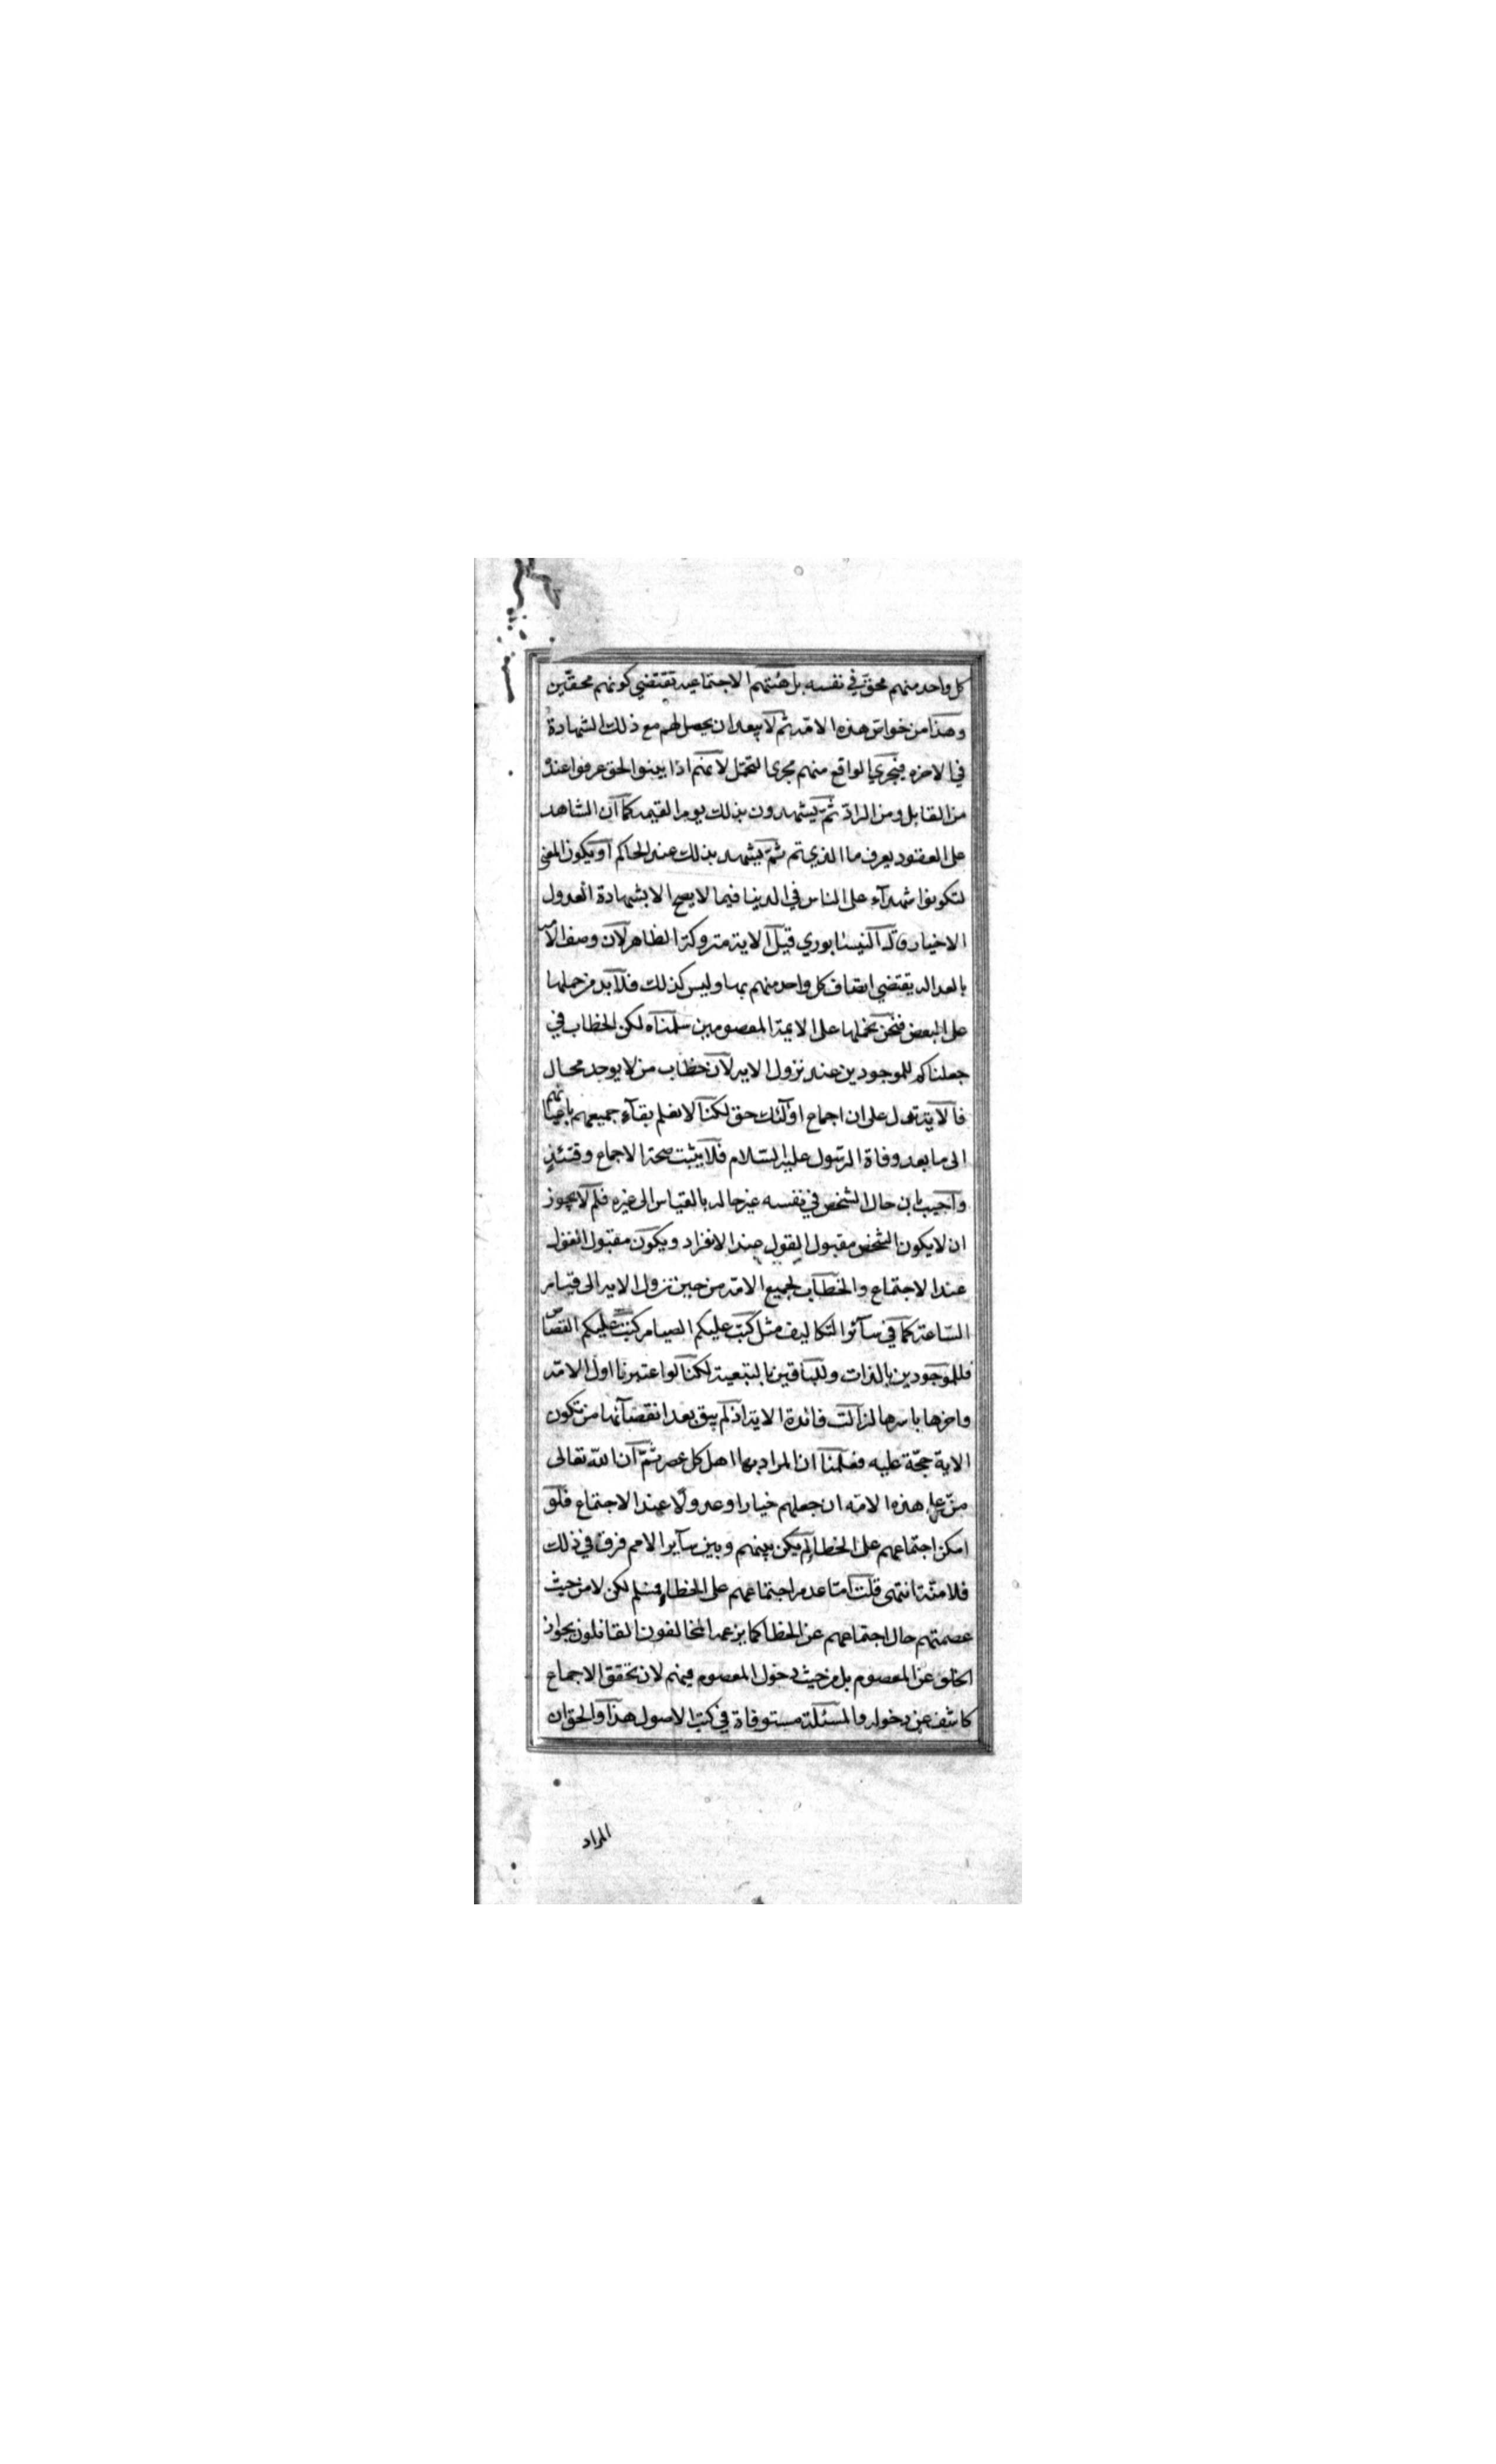 كل واحد منهم محق في نفسه بل هيئتهم الاجتماعية تقتضي كونهم محقين
وهذا من خواص هذه الامة ثم لا يبعد ان يحصل لهم مع ذلك الشهادة
في الاخرة فيجري الواقع منهم مجرى التحمل لانهم اذا بينوا الحق عرفوا عنده
من القابل ومن الراد ثم يشهدون بذلك يوم القيمة كما ان الشاهد
على العقود يعرف ما الذي تم ثم يشهد بذلك عند الحاكم او يكون المعنى
لتكونوا شهدآء على الناس في الدينا فيما لا يصح الا بشهادة العدول
الاخيار وقال النيسابوري قيل الاية متروكة الظاهر لان وصف الامة
بالعدالة يقتضي اتصاف كل واحد منهم بها وليس كذلك فلا بد من حملها
على البعض فنحن نحملها على الايمة المعصومين سلمناه لكن الخطاب في
جعلناكم للموجودين عند نزول الاية لان خطاب من لا يوجد محال
فالاية تدل على ان اجماع اولئك حق لكنا لا نعلم بقآء جميعهم باعيانهم
الى ما بعد وفاة الرسول عليه السلام فلا يثبت صحة الاجماع وقتئذ
واجيب بان حال الشخص في نفسه غير حاله بالقياس الى غيره فلم لا يجوز
ان لا يكون الشخص مقبول القول عند الانفراد ويكون مقبول القول
عند الاجتماع والخطاب لجميع الامة من حين نزول الاية الى قيام
الساعة كما في سآئر التكاليف مثل كتب عليكم الصيام كتب عليكم القصاص
فللموجودين بالذات وللباقين بالتبعية لكنا لو اعتبرنا اول الامة
واخرها باسرها لزالت فائدة الاية اذ لم يبق بعد انقضآئها من تكون
الاية حجة عليه فعلمنا ان المراد بها اهل كل عصر ثم ان الله تعالى
من على هذه الامة ان جعلهم خيارا وعدولا عند الاجتماع فلو
امكن اجتماعهم على الخطا لم يكن بينهم وبين سآير الامم فرق في ذلك
فلا منة انتهى قلت اما عدم اجتماعهم على الخطاء فمسلم لكن لا من حيث
عصمتهم حال اجتماعهم عن الخطأ كما يزعمه المخالفون القائلون بجواز
الخلو عن المعصوم بل من حيث دخول المعصوم فيهم لان تحقق الاجماع
كاشف عن دخوله والمسئلة مستوفاة في كتب الاصول هذا والحق ان
المراد